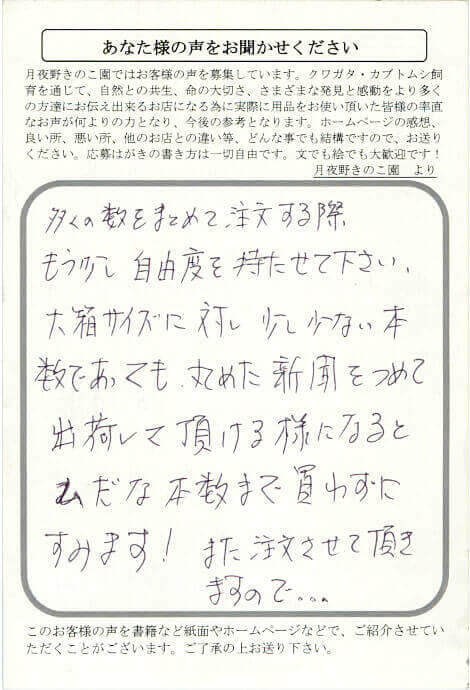 あなた様の声をお聞かせください
月夜野きのこ園ではお客様の声を募集しています。クワガタ・カブトムシ飼
育を通じて、自然との共生、命の大切さ、さまざまな発見と感動をより多く
の方達にお伝え出来るお店になる為に実際に用品をお使い頂いた皆様の率直
なお声が何よりの力となり、今後の参考となります。ホームページの感想、
良い所、悪い所、他のお店との違い等、どんな事でも結構ですので、お送り
ください。応募はがきの書き方は一切自由です。文でも絵でも大歓迎です！
月夜野きのこ園　より
多くの数をまとめて、注文する際
もう少し自由度を持たせて下さい、
大箱サイズに対し少し少ない本
数であっても、丸めた新聞をつめて
出荷して頂ける様になると
ムだな本数まで買わずに
すみます！ また注文させて頂き
ますので...
このお客様の声を書籍など紙面やホームページなどで、ご紹介させてい
ただくことがございます。ご了承の上お送り下さい。